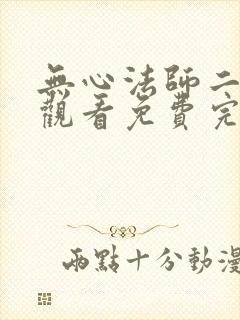 無心法師二
觀看免費完
兩點十分動漫